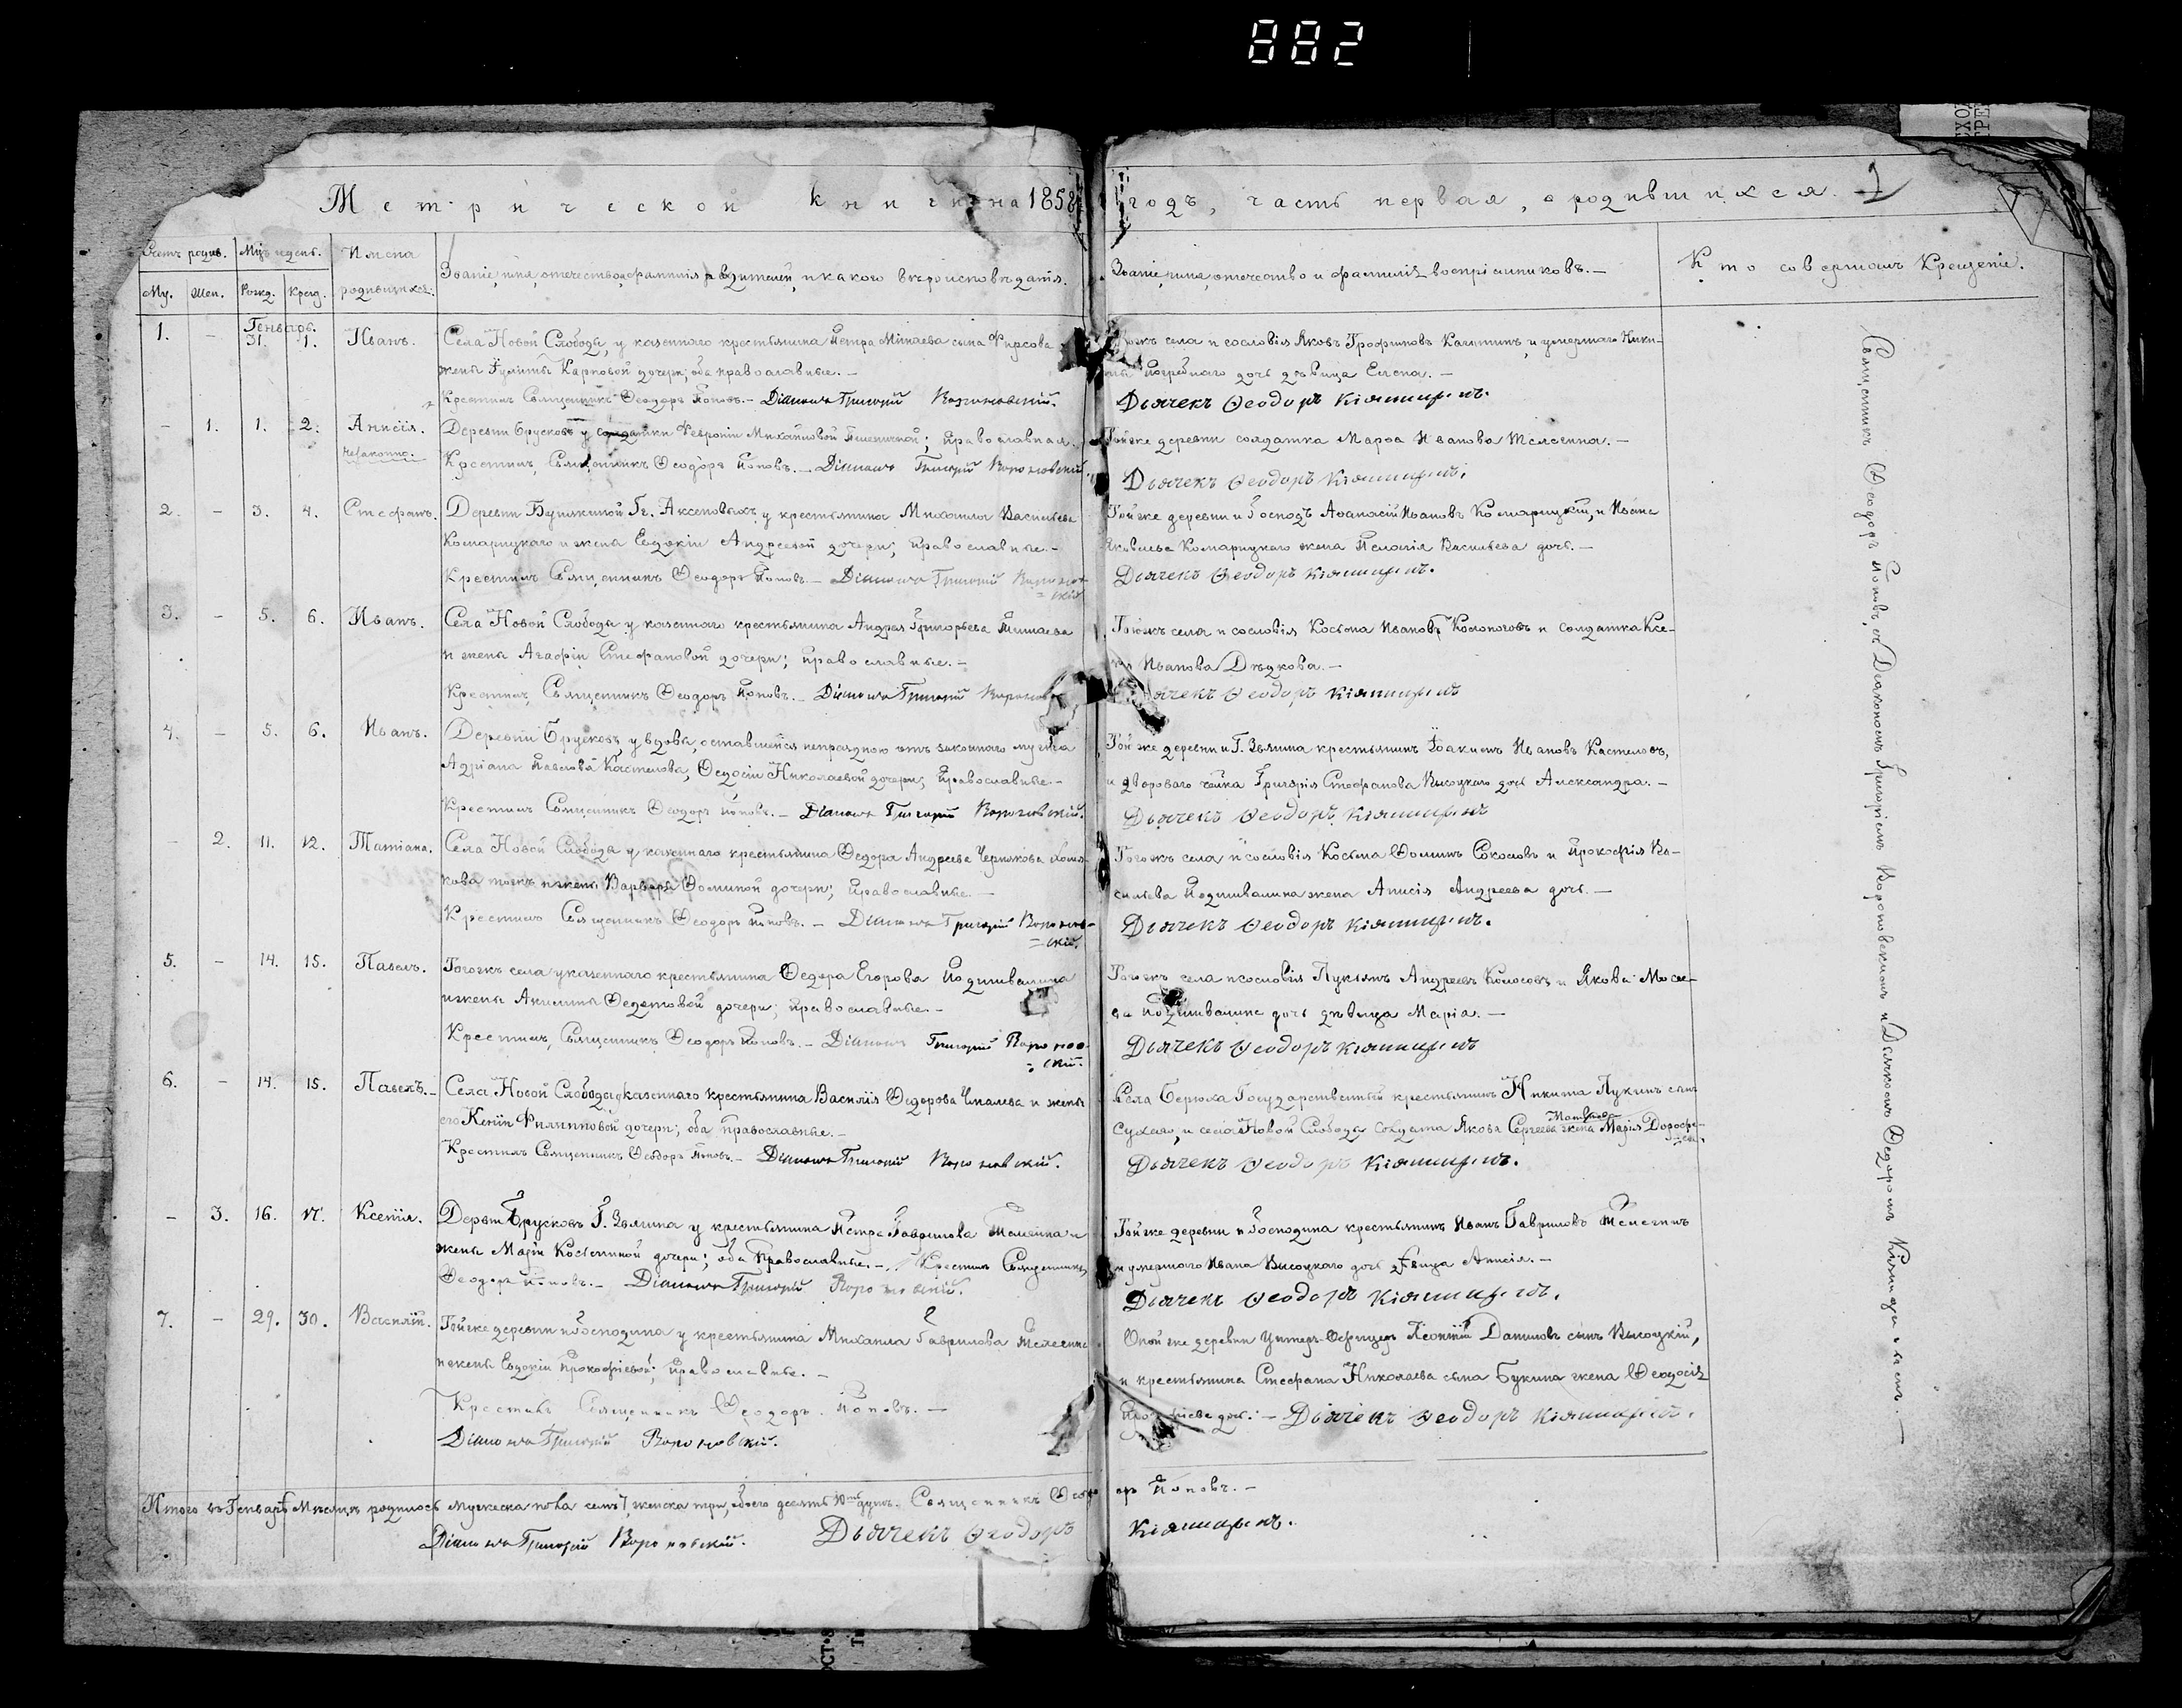 882
Метрической книги на 1858 годъ, часть первая, о родившихся.
Счетъ родив. Мцъ и день. Имена родившихся.
Званіе, имя, отечество и фамилія родителей, и какого вѣроисповѣданія.
Званіе, имя, отечество и фамилія воспріемниковъ.
Кто совершалъ Крещеніе.
Му. Жен. Рожд. Крещ.
Генварь.
1. – 31. 1. Иванъ.
Села Новой Слободы, у казеннаго крестьянина Петра Минаева сына Фирсова
жены Карповой дочери; оба православные. –
Крестилъ Священникъ Ѳеодоръ Поповъ. – Діаконъ Григорій Вороновскій.
села и сословія Яковъ и умершаго Ники-
дочь дѣвица Елена. –
Дьячекъ Ѳеодоръ
– 1. 1. 2. Анисія.
незаконно.
Деревни Брусковъ у солдатки Февроніи Михайловой православная.
Крестилъ Священникъ Ѳеодоръ Поповъ. – Діаконъ Григорій Вороновскій.
Тойже деревни солдатка Марѳа Иванова –
Дьячекъ Ѳеодоръ
2. – 3. 4. Стефанъ.
Деревни у крестьянина Михаила Васильева
Комарицкаго и жены Евдокіи Андреевой дочери; православные. –
Крестилъ Священникъ Ѳеодоръ Поповъ. – Діаконъ Григорій Вороновскій
Тойже деревни и Господъ Аѳанасій Ивановъ Комарицкій, и Ивана
Яковлева Комарицкаго жена Пелагія Васильева дочь. –
Дьячекъ Ѳеодоръ
3. – 5. 6. Иванъ.
Села Новой Слободы у казеннаго крестьянина Андрея Григорьева Минаева
и жены Агафіи Стефановой дочери; православные. –
Крестилъ Священникъ Ѳеодоръ Поповъ. – Діаконъ Григорій
Тогожъ села и сословія Косьма Ивановъ и солдатка Ксе-
Иванова Дѣдкова. –
Дьячекъ Ѳеодоръ
4. – 5. 6. Иванъ.
Деревни Брусковъ, у вдовы, оставшейся непраздною отъ законнаго мужа
Адріана Павлова Кастелова, Ѳедосіи Николаевой дочери; православные. –
Крестилъ Священникъ Ѳеодоръ Поповъ. – Діаконъ Григорій Вороновскій.
Тойже деревни и Г. Зыгина крестьянинъ Іоакимъ Ивановъ Кастеловъ,
и двороваго Григорія Стефанова Высоцкаго дочь Александра. –
Дьячекъ Ѳеодоръ
– 2. 11. 12. Татіана.
Села Новой Слободы у казеннаго крестьянина Ѳедора Андреева Чернякова
и жены Варвары Ѳоминой дочери; православные. –
Крестилъ Священникъ Ѳеодоръ Поповъ. – Діаконъ Григорій Воронов-
=скій.
Тогожъ села и сословія Косьма Ѳоминъ Соколовъ и Прокофія Ва-
сильева Подшивалина жена Анисія Андреева дочь. –
Дьячекъ Ѳеодоръ
5. – 14. 15. Павелъ.
Тогожъ села у казеннаго крестьянина Ѳедора Егорова Подшивалина
и жены Акилины Ѳедотовой дочери; православные. –
Крестилъ, Священникъ Ѳеодоръ Поповъ. – Діаконъ Григорій Воронов-
=скій.
Тогожъ села и сословія Лукьянъ Андреевъ Колосовъ и Якова Мосее-
ва Подшивалина дочь дѣвица Марія. –
Дьячекъ Ѳеодоръ
6. – 14. 15. Павелъ. –
Села Новой Слободы казеннаго крестьянина Василія Ѳедорова и жены
его Ксеніи Филиповой дочери; оба православные. –
Крестилъ Священникъ Ѳеодоръ Поповъ. – Діаконъ Григорій Вороновскій.
Села Берюха Государственный крестьянинъ Никита Лукинъ сынъ
Сухаго, и села Новой Слободы солдата Якова Сергеева жена Марія Дорофе-
Дьячекъ Ѳеодоръ
– 3. 16. 17. Ксенія.
Дерев. Брусковъ Г. Зыгина у крестьянина Петра Гаврилова и
жены Маріи Косьминой дочери; оба Православные. – Крестилъ Священникъ
Ѳеодоръ Поповъ. – Діаконъ Григорій Вороновскій.
Тойже деревни и Господина крестьянинъ Иванъ Гавриловъ
и умершаго Ивана Высоцкаго дочь дѣвица Анисія. –
Дьячекъ Ѳеодоръ
7. – 29. 30. Василій.
Тойже деревни и Господина у крестьянина Михаила Гаврилова
и жены Евдокіи Прокофіевой; православные. –
Крестилъ Священникъ Ѳеодоръ Поповъ. –
Діаконъ Григорій Вороновскій.
Оной же деревни Унтеръ-Офицеръ Леонтій Даниловъ сынъ Высоцкій,
и крестьянина Стефана Николаева сына Букина жена Ѳеодосія
дочь. – Дьячекъ Ѳеодоръ
Священникъ Ѳеодоръ Поповъ, съ Діакономъ Григоріемъ Вороновскимъ и Дьячкомъ Ѳедоромъ
Итого въ Генварѣ Мѣсяцѣ родилось мужеска пола семь 7, женска три, обоего десять 10 душъ. Священникъ Ѳеодоръ Поповъ. –
Діаконъ Григорій Вороновскій. Дьячекъ Ѳеодоръ